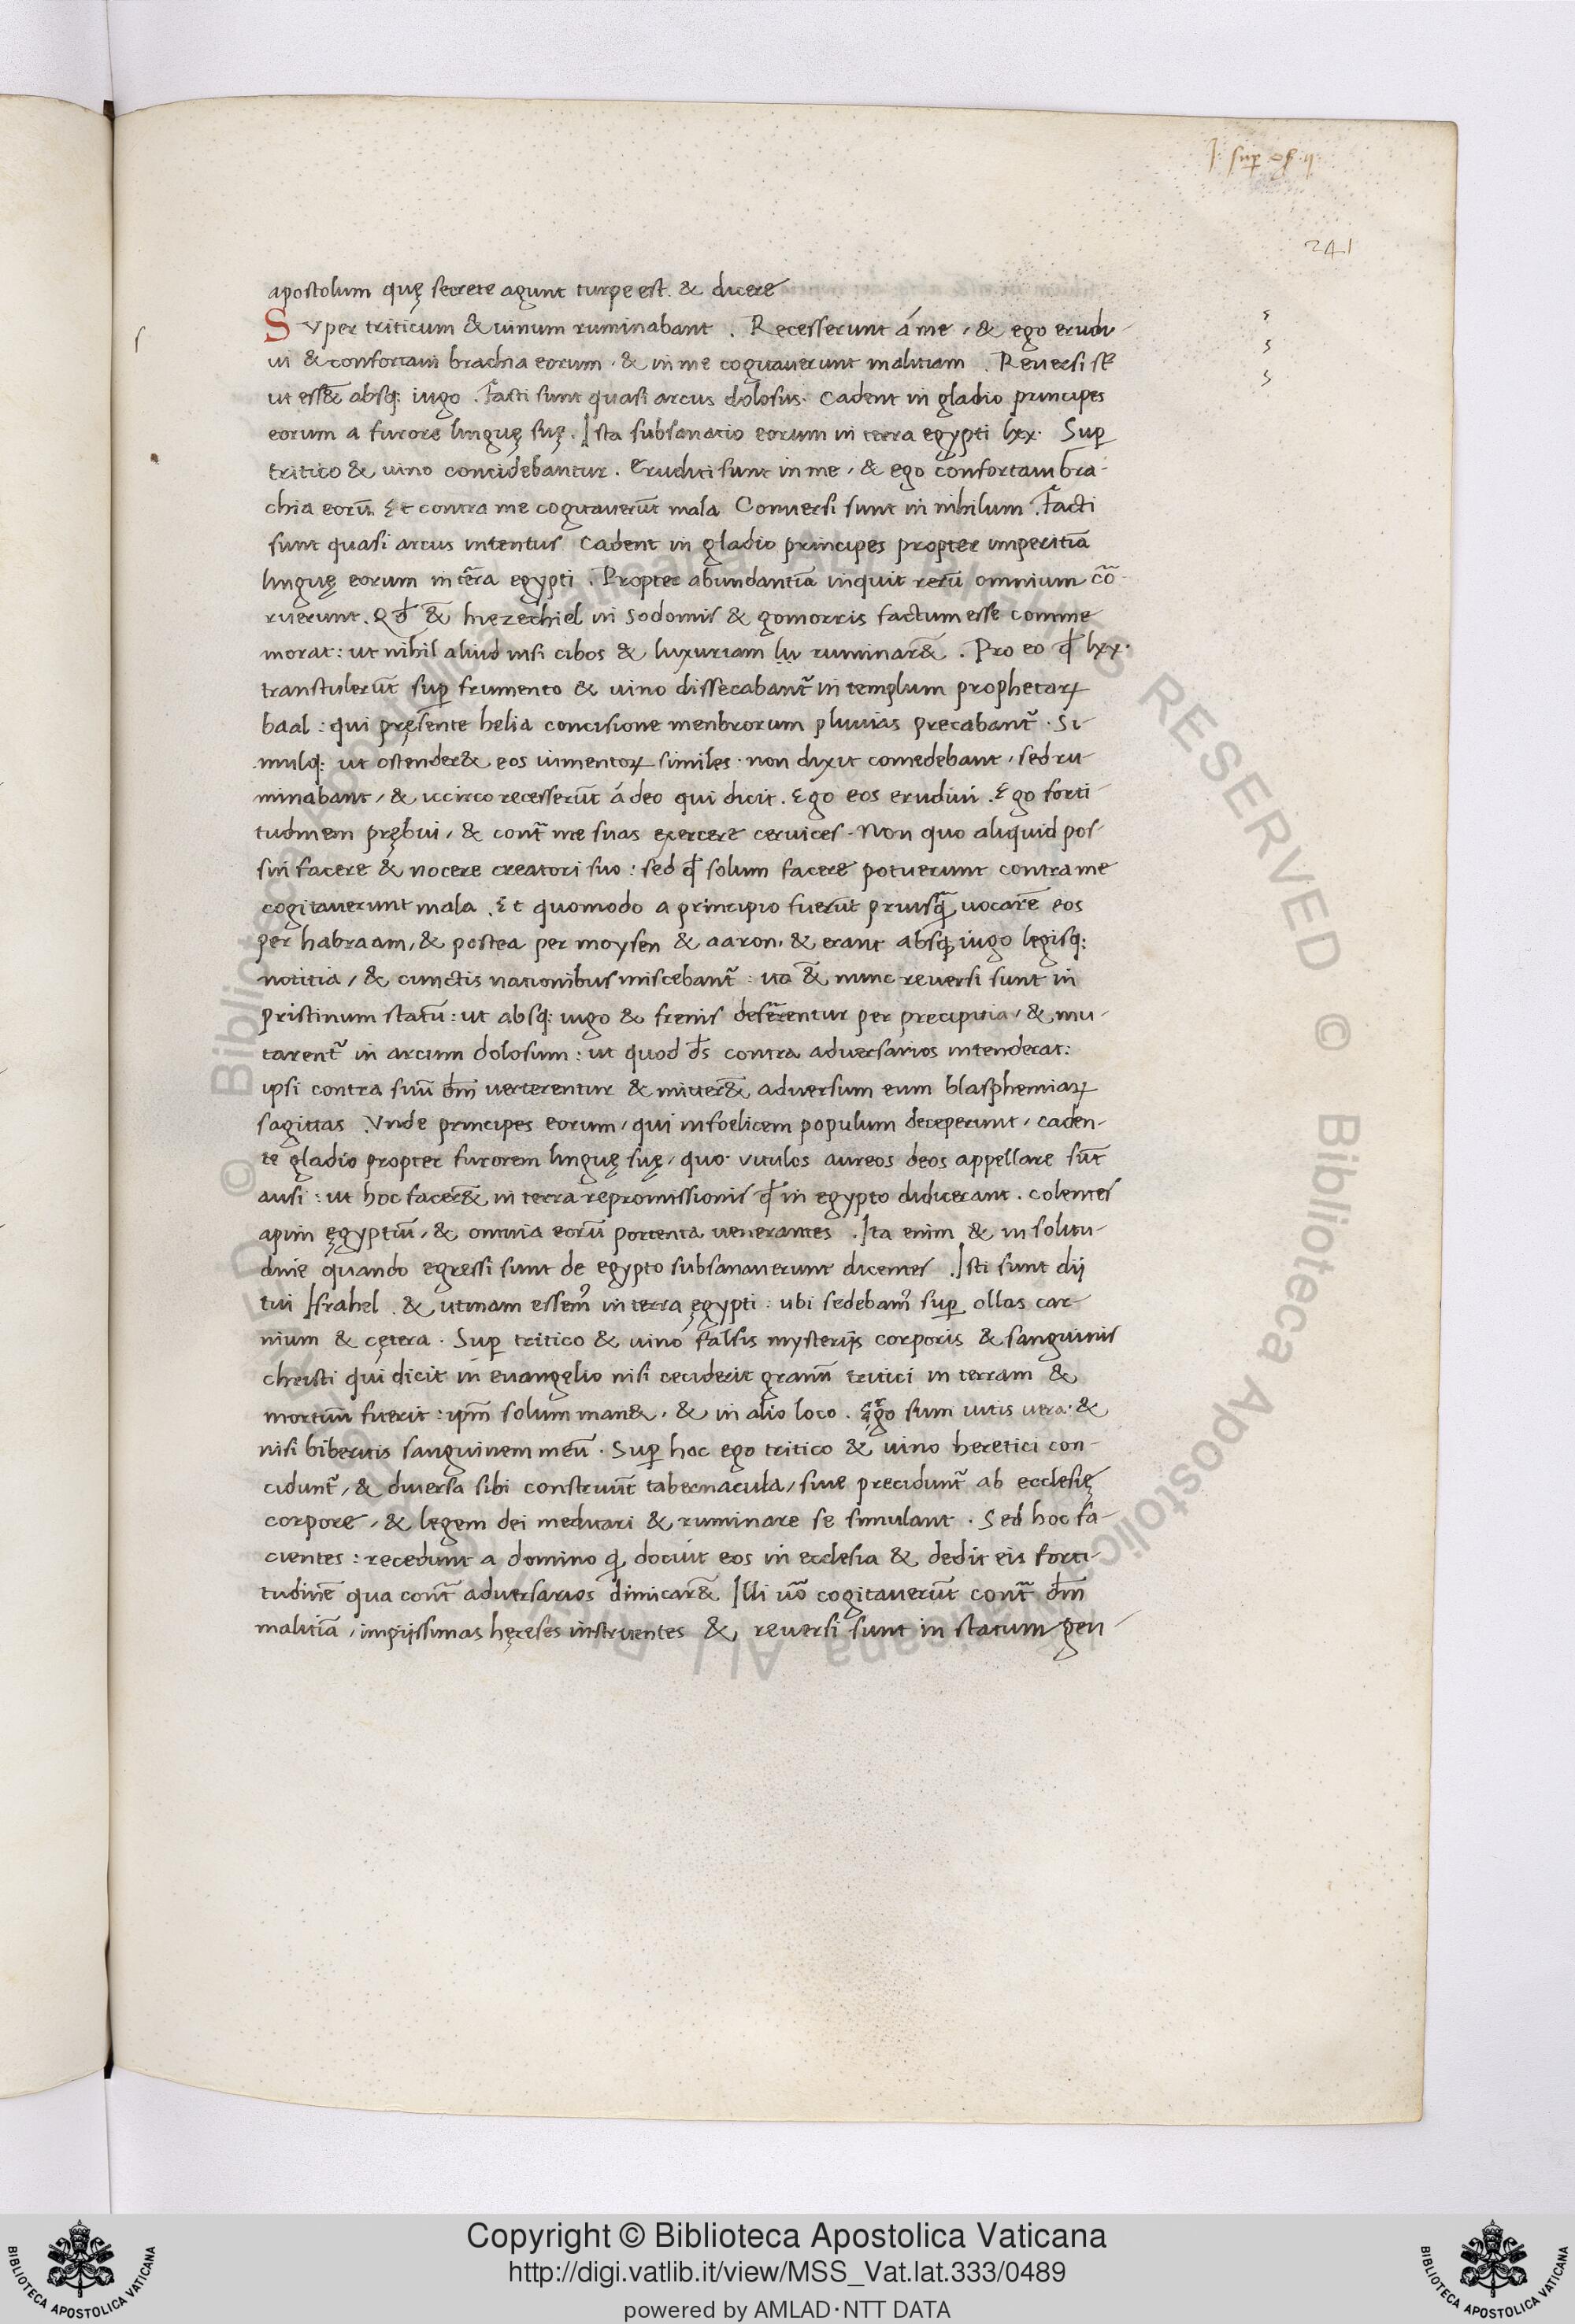 J. sup os ij
241
apostolum quę secrete agunt turpe est. & dicere
Super triticum & uinum ruminabant . Recesserunt á me, & ego erudi-
ui & confortaui brachia eorum, & in me cogitauerunt malitiam . Reuersi st̄
ut ess& absq: iugo . Facti sunt quasi arcus dolosus. Cadent in gladio principes
eorum a furore linguę suę. Ista subsanatio eorum in terra egypti lxx. Sup̱
tritico & uino concidebantur. Eruditi sunt in me, & ego confortaui bra-
chia eorū. Et contra me cogitauerūt mala. Conuersi sunt in nihilum. Facti
sunt quasi arcus intentus. Cadent in gladio principes propter imperitiā
linguę eorum in terra egypti. Propter abundantiā inquit rerū omnium cō-
ruerunt. Qđ & hiezechiel in Sodomis & gomorris factum esse comme
morat: ut nihil aliud nisi cibos & luxuriam lu ruminar&. Pro eo qđ lxx.
transtulerūt sup̱ frumento & uino dissecabant᷒ in templum prophetaꝝ
baal: qui pręsente helia concisione menbrorum pluuias precabant᷒. Si-
mulq: ut ostender& eos iumentoꝝ similes. non dixit comedebant, sed ru-
minabant, & iccirco recesserūt á deo qui dicit. Ego eos erudiui. Ego forti-
tudinem prębui, & cont̄ me suas exercere ceruices. Non quo aliquid pos-
sin facere & nocere creatori suo: sed qđ solum facere potuerunt contra me
cogitauerunt mala. Et quomodo a principio fuerūt priusq̄ uocarē eos
per habraam, & postea per moysen & aaron, & erant absq: iugo legisq:
notitia, & cunctis nationibus miscebant᷒: ita & nunc reuersi sunt in
pristinum statū: ut absq: iugo & frenis deferentur per precipitia, & mu-
tarent᷒ in arcum dolosum: ut quod ds̄ contra aduersarios intenderat:
ipsi contra suū dm̄ uerterentur & mitter& aduersum eum blasphemiaꝝ
sagittas. Vnde principes eorum, qui infoelicem populum deceperunt, caden-
te gladio propter furorem linguę suę, quo uitulos aureos deos appellare sūt
ausi: ut hoc facer& in terra repromissionis qđ in egypto didicerant. colentes
apim ęgyptiū, & omnia eorū portenta uenerantes. Ita enim & in solitu-
dine quando egressi sunt de egypto subsanauerunt dicentes. Isti sunt dij
tui Israhel. & utinam essem᷒ in terra ęgypti: ubi sedebam᷒ sup̱ ollas car-
nium & cętera. Sup̱ tritico & uino falsis mysterijs corporis & sanguinis
christi qui dicit in euangelio nisi ceciderit granū tritici in terram &
mortuū fuerit: ipm̄ solum man&, & in alio loco. Ego sum uitis uera. &
nisi biberitis sanguinem meū. Sup̱ hoc ego tritico & uino heretici con-
cidunt᷒, & diuersa sibi construūt tabernacula, siue precidunt᷒ ab ecclesię
corpore, & legem dei meditari & ruminare se simulant. Sed hoc fa-
cientes: recedunt a domino q̱ docuit eos in ecclesia & dedit eis forti-
tudinē qua cont̄ aduersarios dimicar& Illi uō cogitauerūt cont̄ dm̄
malitiā, impijssimas hęreses instruentes &, reuersi sunt in statum gen-
© Biblioteca Apostolica Vaticana ALL RIGHTS RESERVED
Copyright © Biblioteca Apostolica Vaticana
http://digi.vatlib.it/view/MSS_Vat.lat.333/0489
powered by AMLAD·NTT DATA
BIBLIOTECA APOSTOLICA VATICANA
BIBLIOTECA APOSTOLICA VATICANA